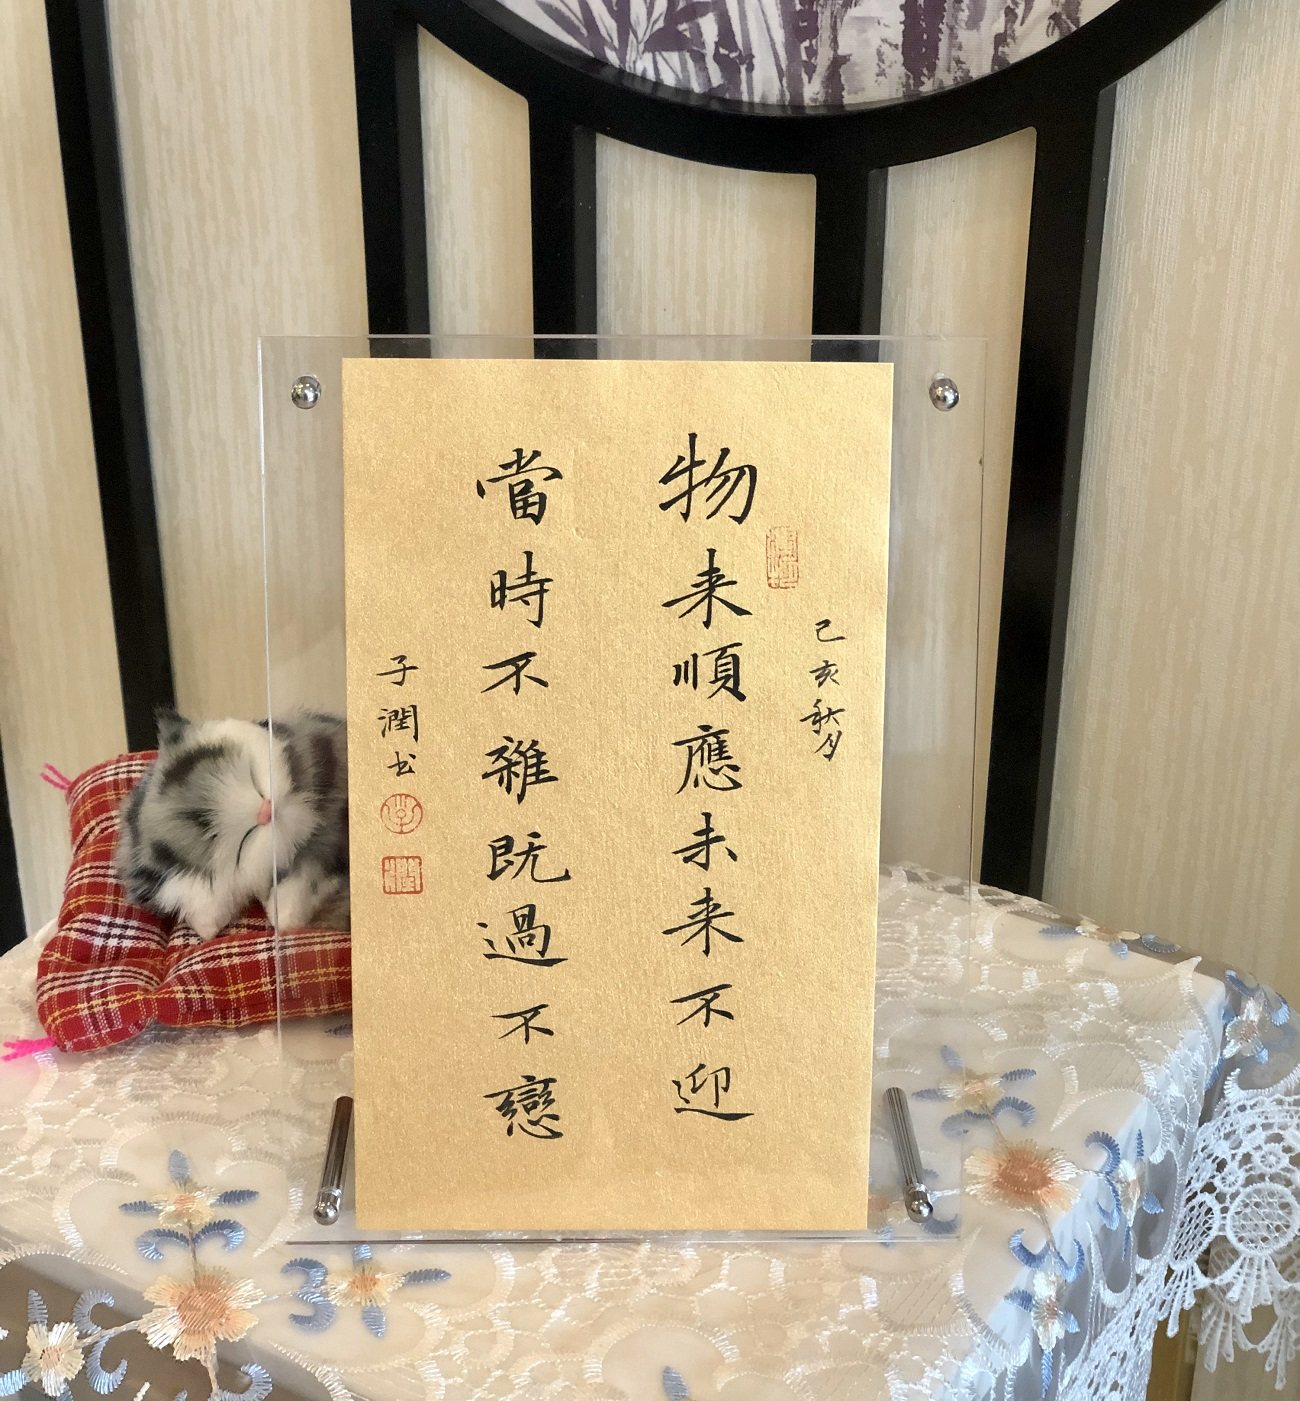 己亥秋月
物来順應未来不迎
當時不雜既過不戀
子潤书